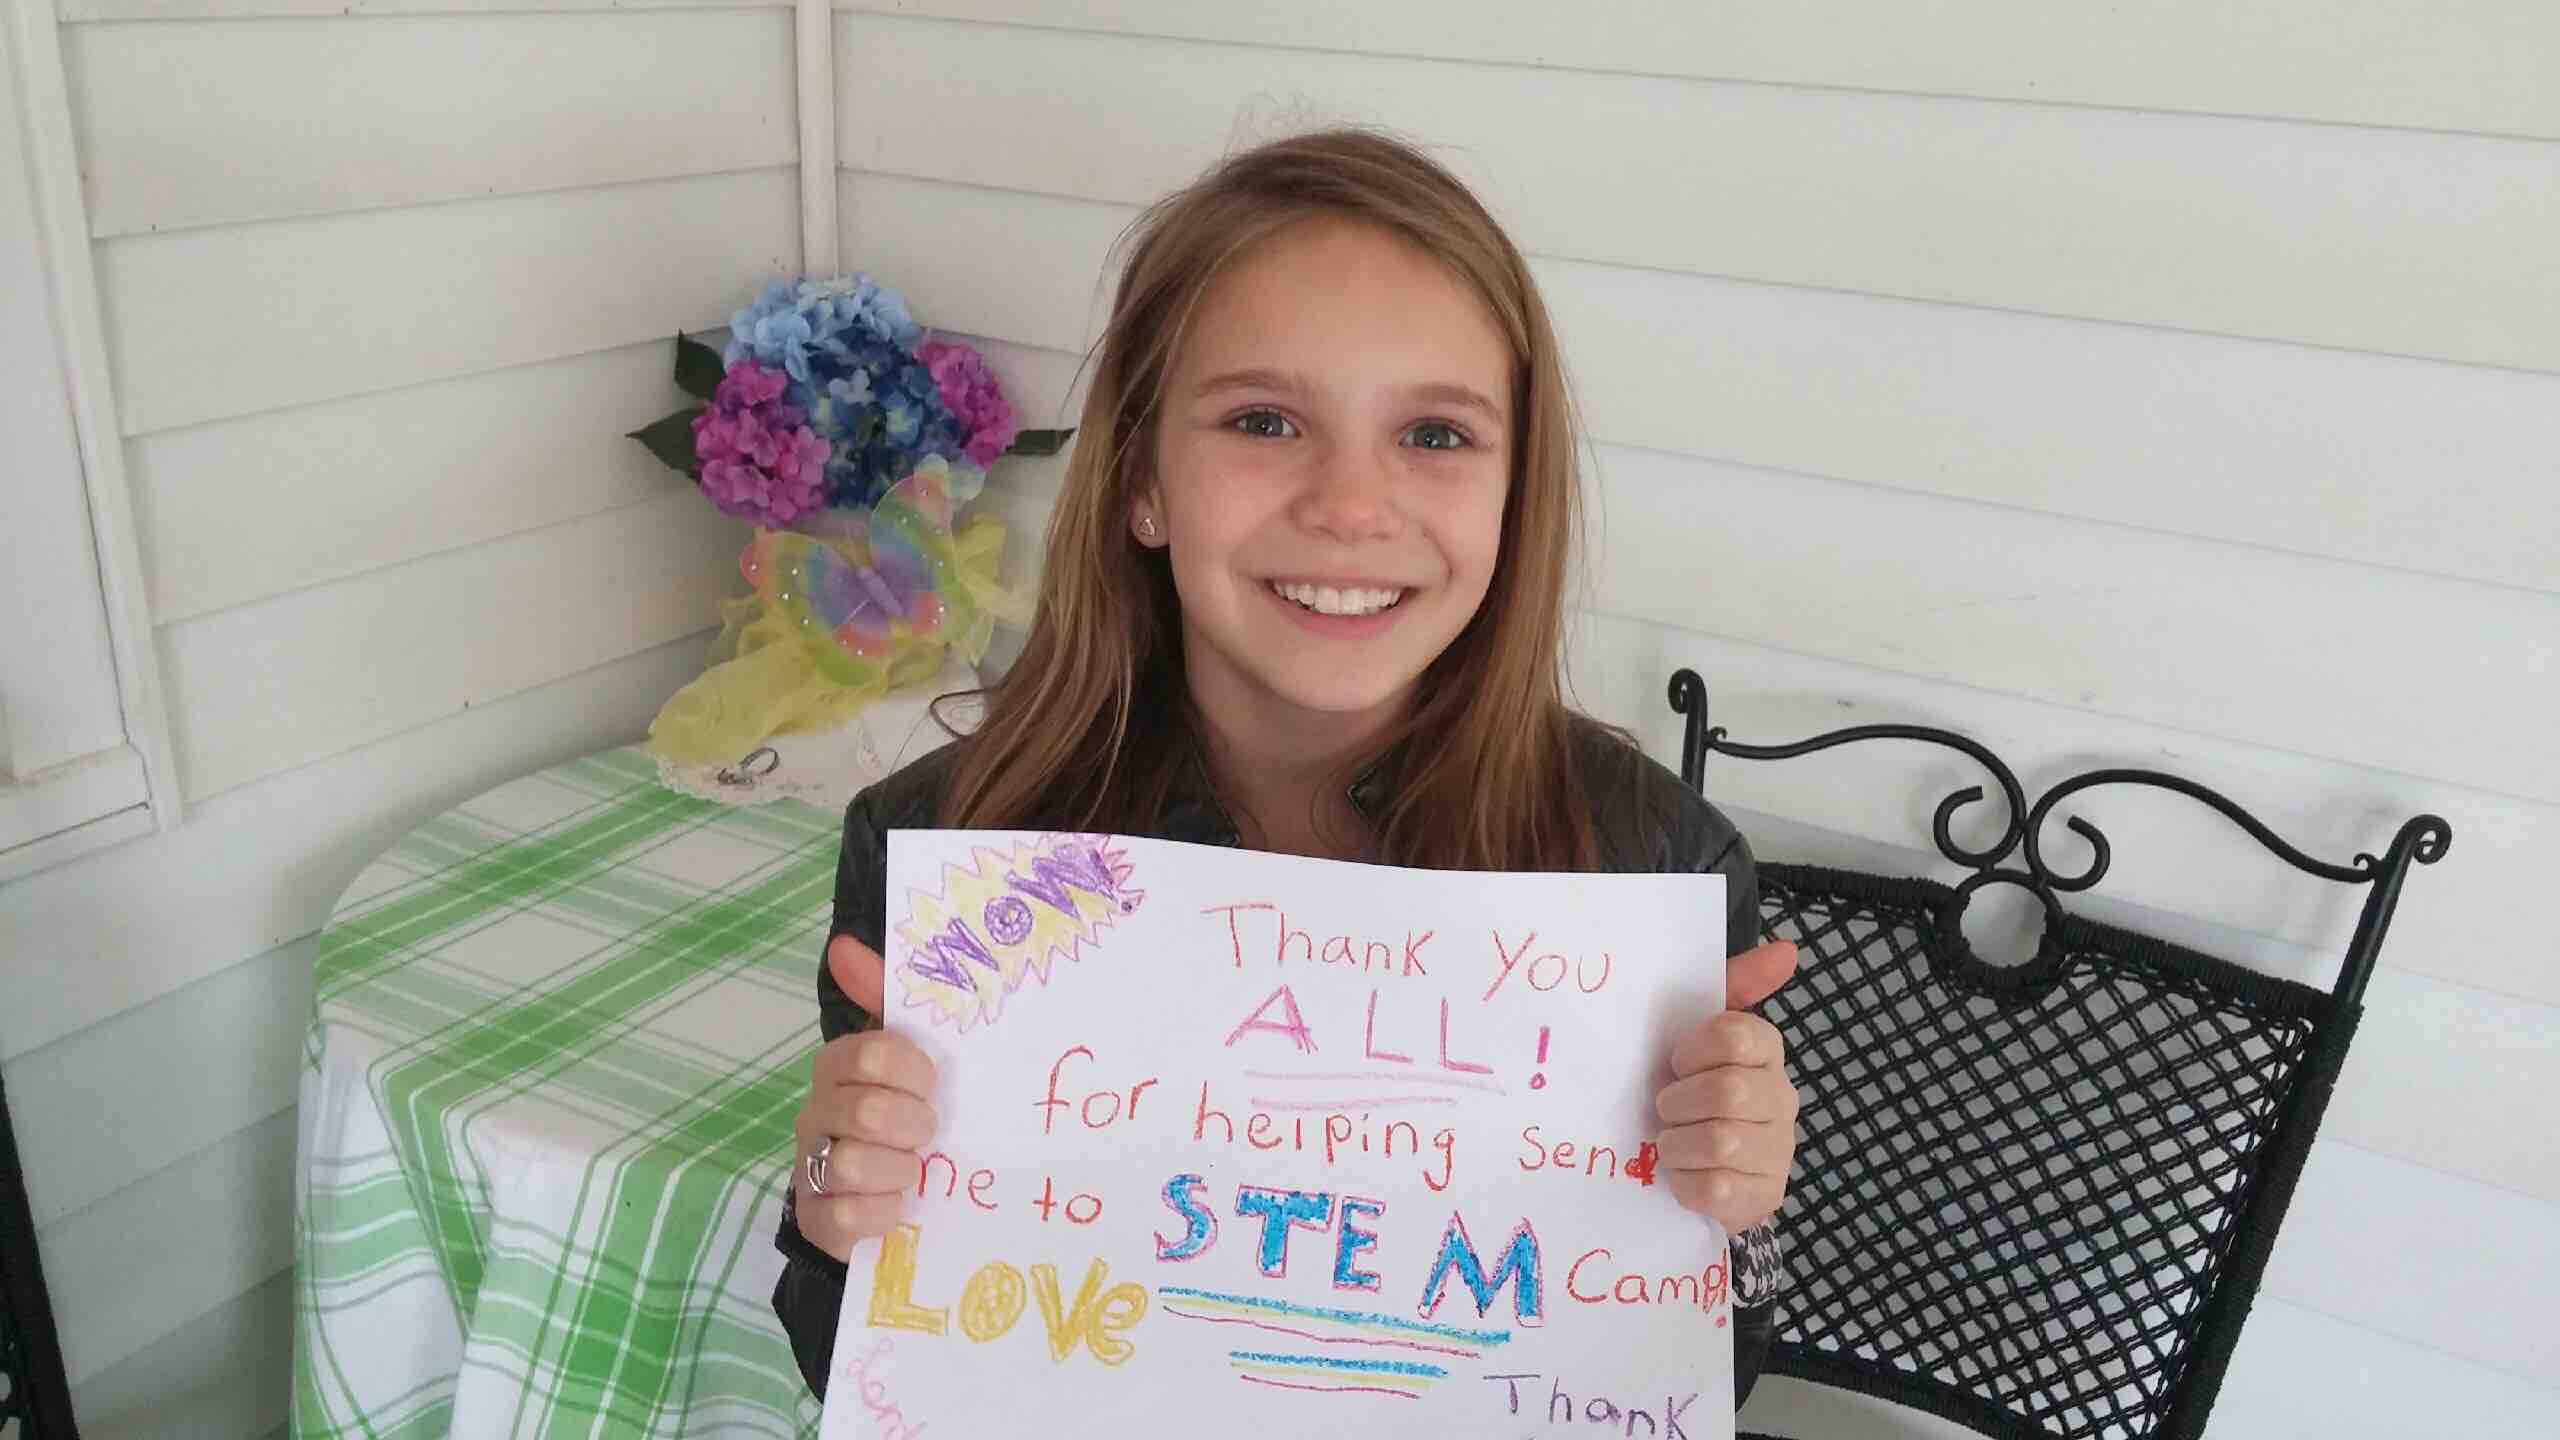 WOW!
Thank You
ALL!
for helping Send
me to STEM Camp!
Love
Thank